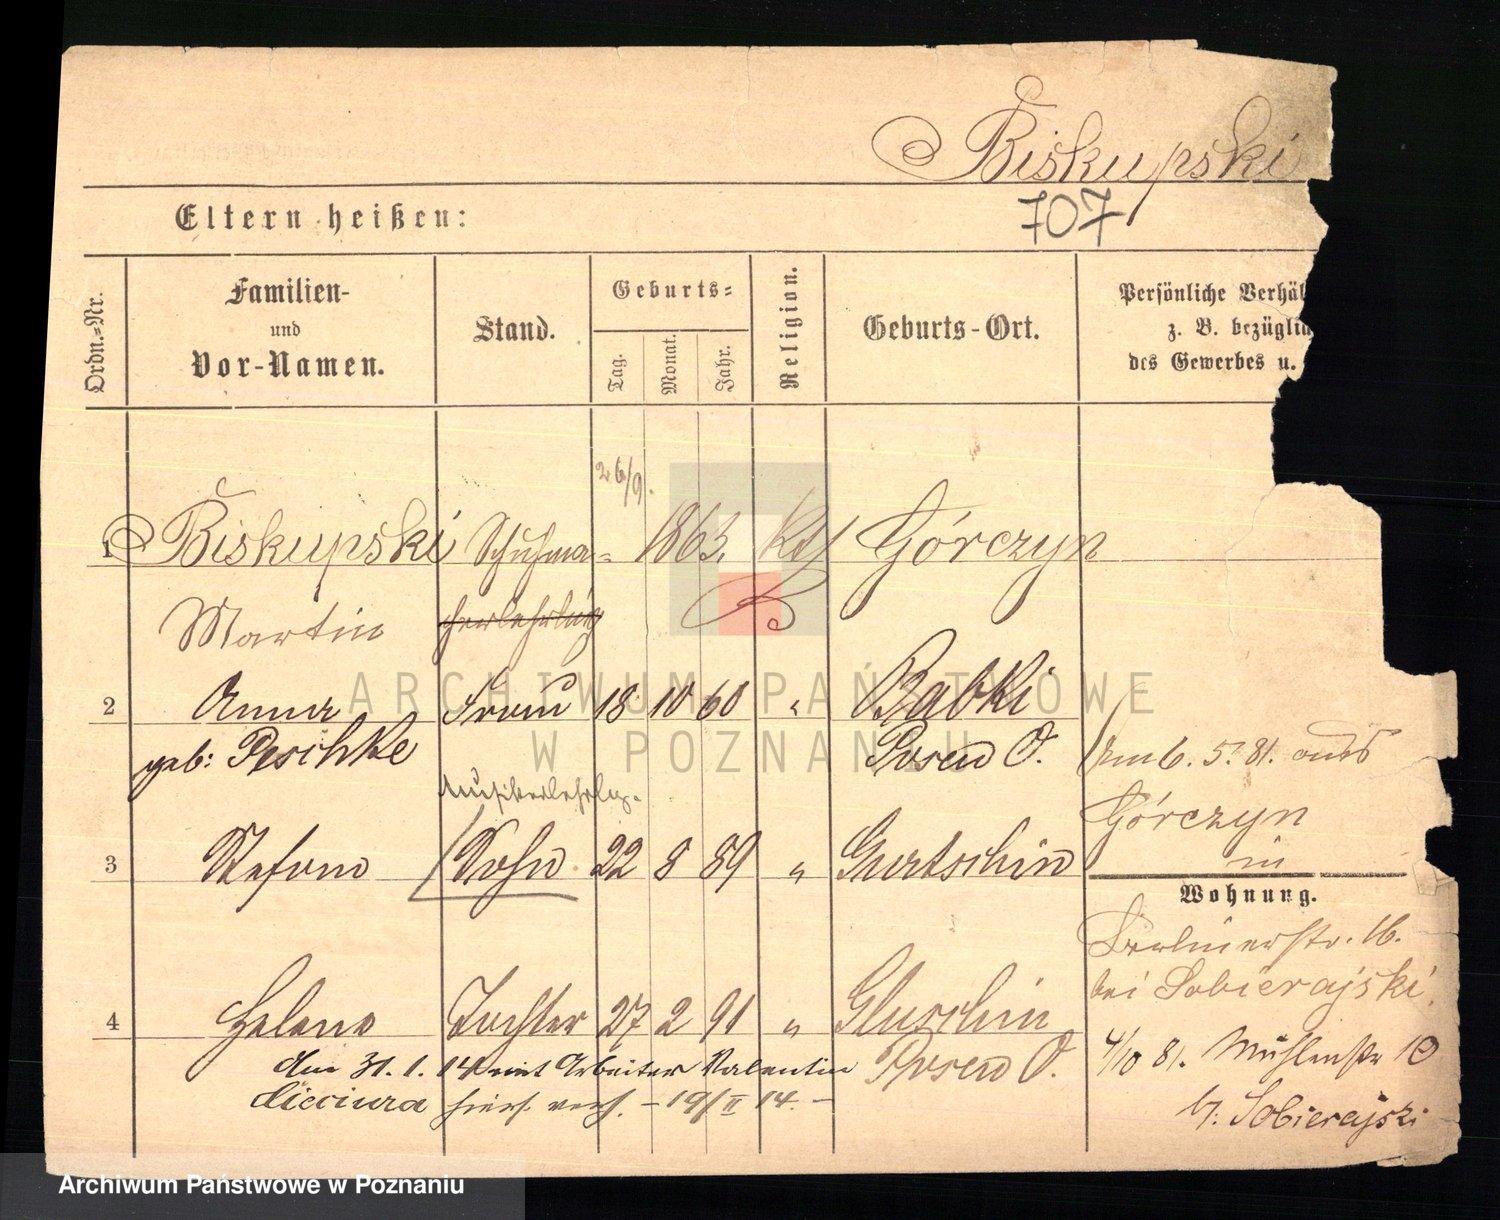 Biskupski
707
Eltern heißen:
Ordn.-Nr.
Familien-
und
Vor-Namen.
Stand.
Geburts-
Tag.
Monat.
Jahr.
Religion.
Geburts-Ort.
Persönliche Verhäl
z. B. bezüglic
des Gewerbes u.
26/9.
1 Biskupski Schuhma- 1863. Kth Górczyn
Martin cherlehrling
2 Anna Frau 18 10 60 " Babki
geb: Peschke Posen O.
Musikerlehrlg.
3 Stefan Sohn 22 8 89 " Gurtschin
4 Helene Tochter 27 2 91 " Gluschin
Posen O.
am 31. 1. 14 mit Arbeiter Valentin
hier verh. - 19/II 14. -
6. 5. 81. aus
Górczyn
in
Wohnung.
Berlinerstr. 16.
bei Sobierajski.
4/10 81. Mühlenstr 10
b/. Sobierajski
ARCHIWUM PAŃSTWOWE
W POZNANIU
Archiwum Państwowe w Poznaniu